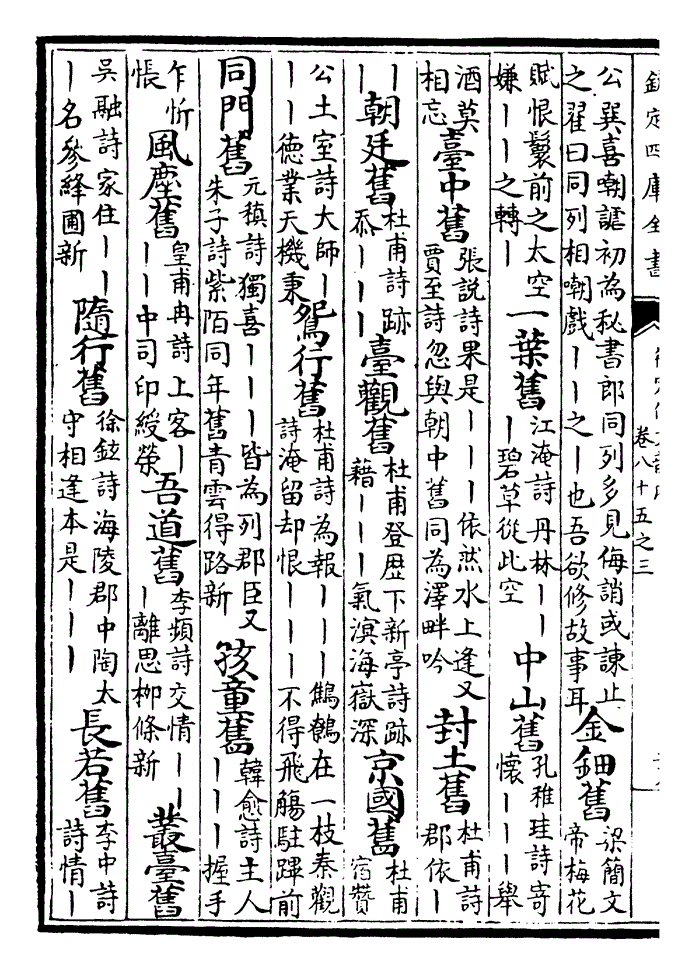 欽定四庫全書
卷八十五之三
公巽喜嘲謔初為秘書郎同列多見侮誚或諫止
之翟曰同列相嘲戲丨丨之丨也吾欲修故事耳
金鈿舊
梁簡文
帝梅花
賦恨鬟前之太空
嫌丨丨之轉丨
一葉舊
江淹詩丹林丨丨
丨碧草從此空
中山舊
孔稚珪詩寄
懷丨丨丨舉
酒莫
相忘
臺中舊
張說詩果是丨丨丨依然水上逢又
賈至詩忽與朝中舊同為澤畔吟
封土舊
杜甫詩
郡依丨
丨
丨
朝廷舊
杜甫詩跡
忝丨丨丨
臺觀舊
杜甫登歴下新亭詩跡
藉丨丨丨氣溟海嶽深
京國舊
杜甫
宿贊
公土室詩大師丨
丨丨德業天機秉
鴛行舊
杜甫詩為報丨丨丨鷦鷯在一枝秦觀
詩淹留却恨丨丨丨不得飛觴駐蹕前
同門舊
元稹詩獨喜丨丨丨皆為列郡臣又
朱子詩紫陌同年舊青雲得路新
孩童舊
韓愈詩主人
丨丨丨握手
乍忻
悵
風塵舊
皇甫冉詩上客丨
丨丨中司印綬榮
吾道舊
李頻詩交情丨丨
丨離思柳條新
叢臺舊
吳融詩家住丨丨
丨名參絳圃新
隨行舊
徐鉉詩海陵郡中陶太
守相逢本是丨丨丨
長若舊
李中詩
詩情丨